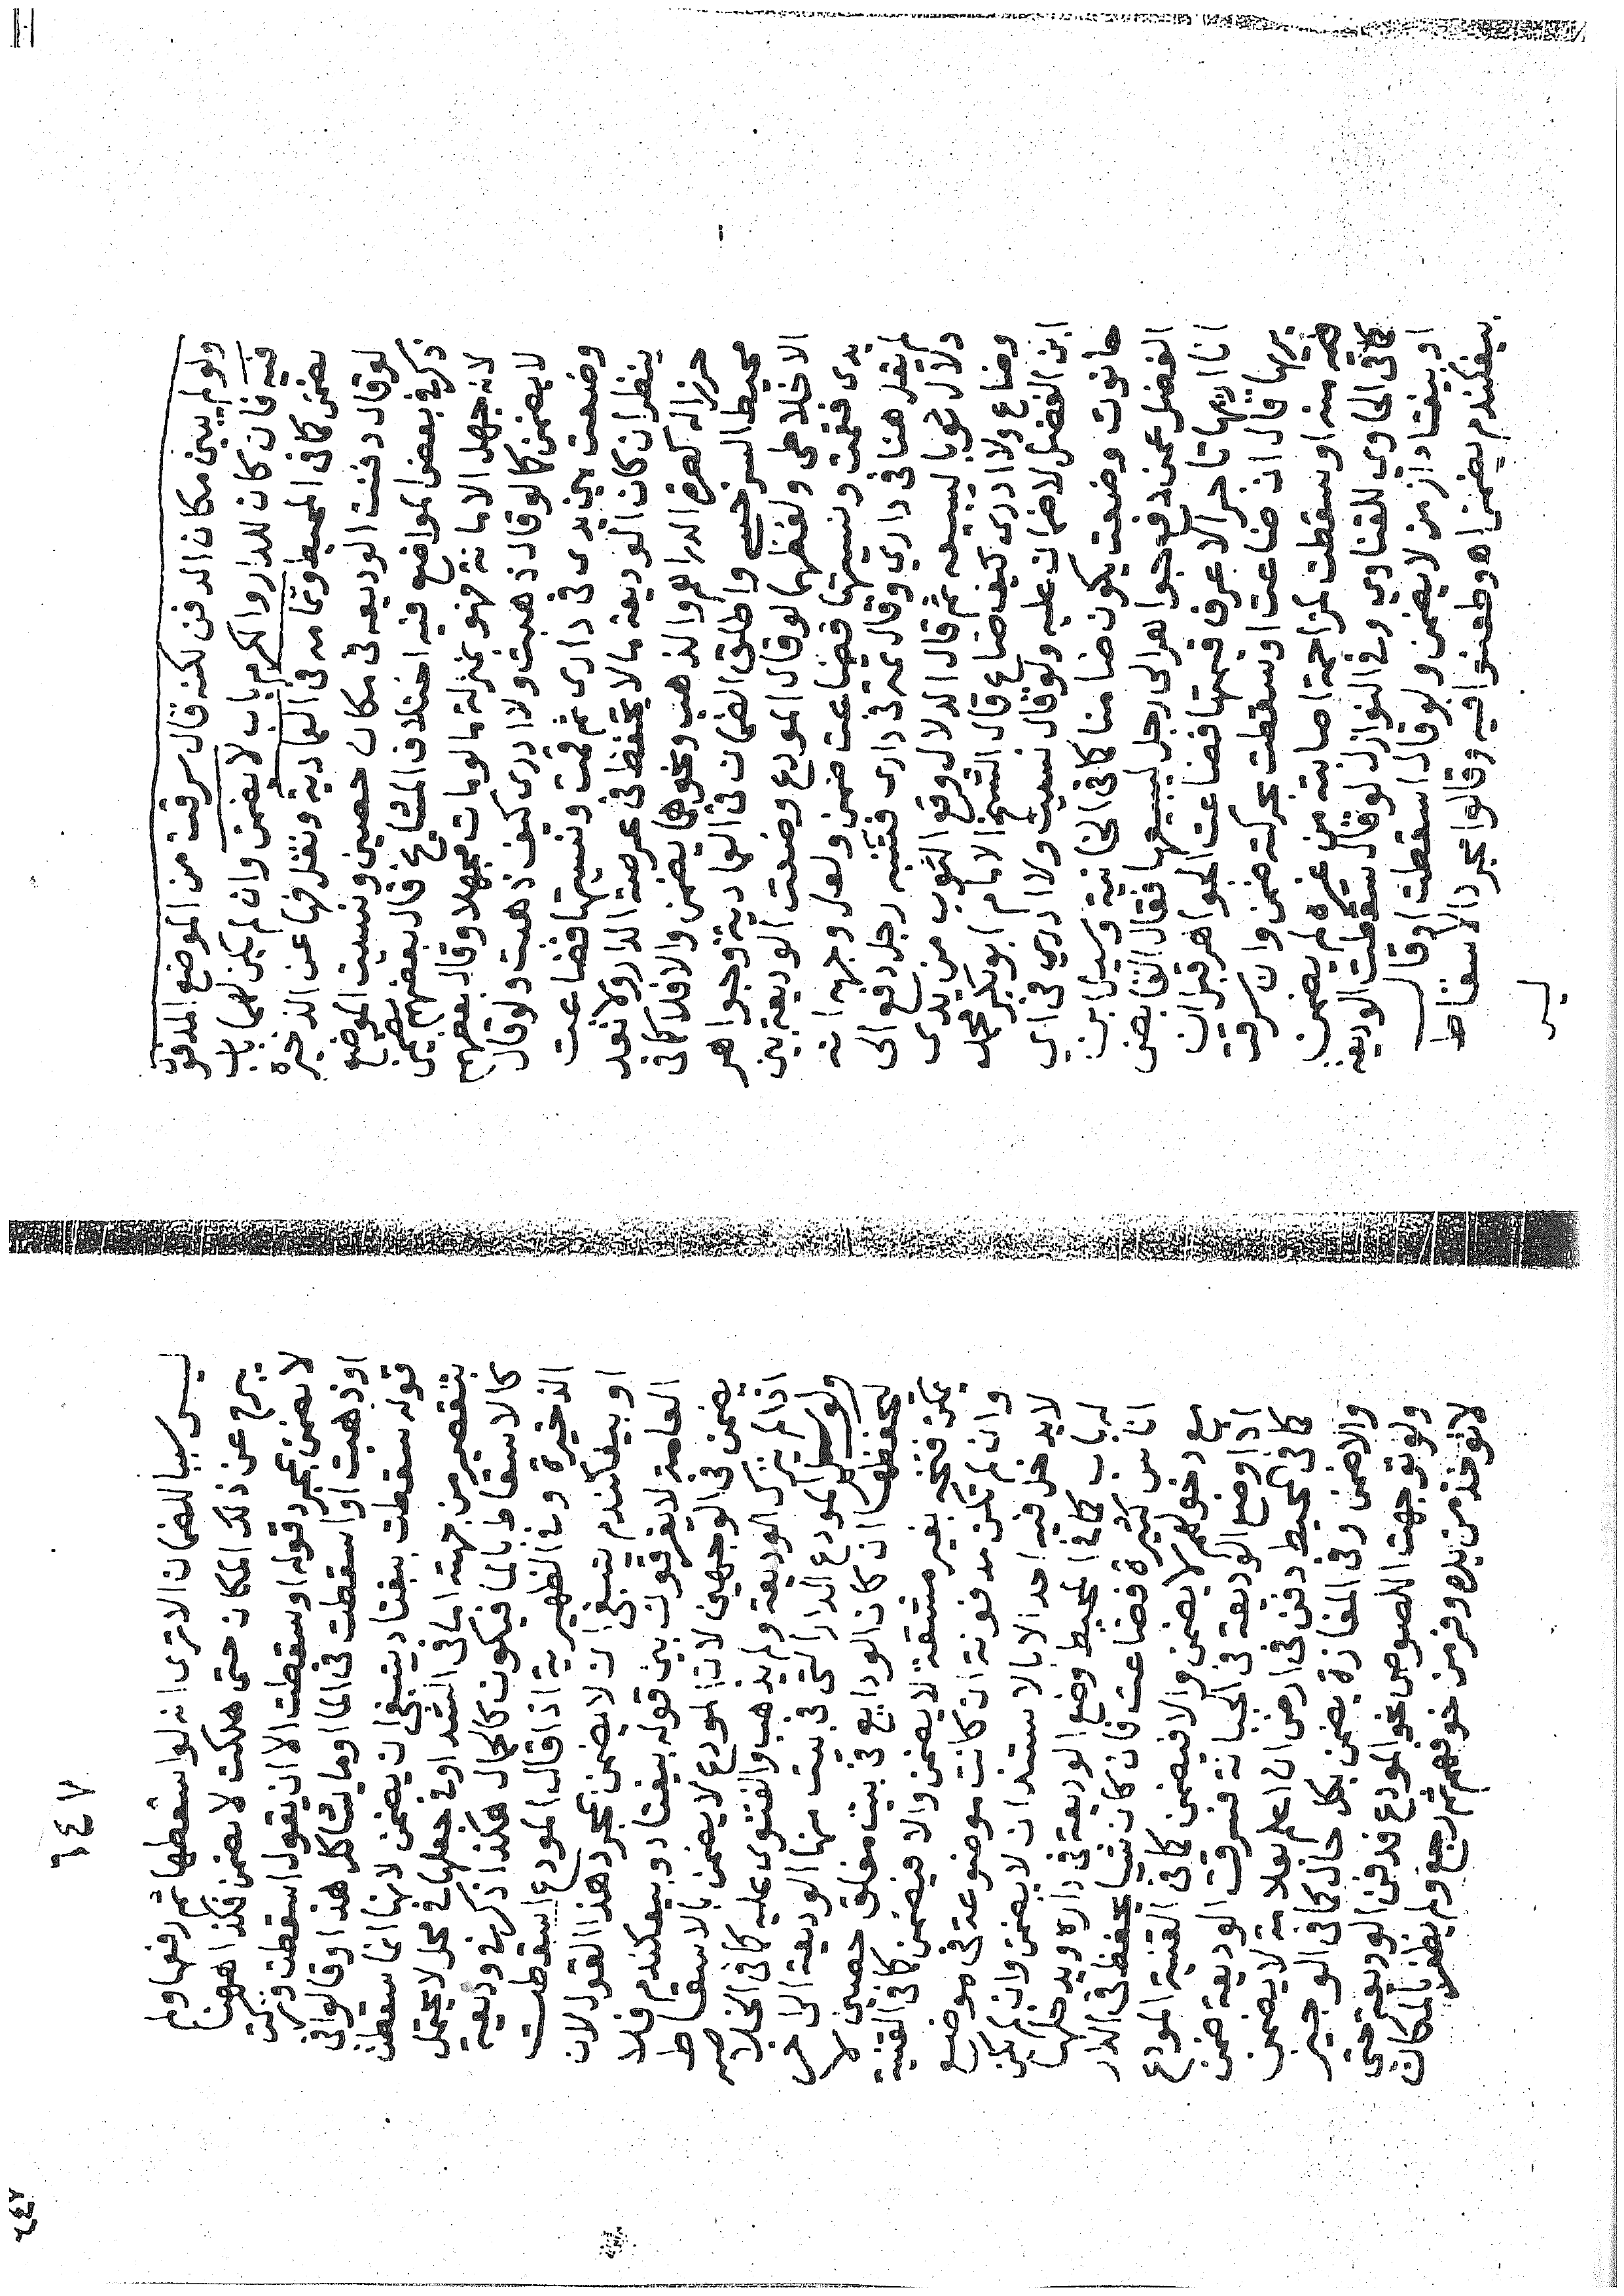 ولو لم يبين مكان الدفن لكنه قال سرقت من الموضع المدفون
فيه فان كان للدار والكرم باب لا يضمن وان لم يكن لهما باب
يضمن كما في المحيط وتمامه في العمادية ونقل فيها عن الذخيرة
لو قال دفنت الوديعه في مكان حصين ونسيت الموضع
ذكر في بعض المواضع فيه اختلاف المشايخ قال بعضهم يضمن
لانه جهل الامانة فهو بمنزلة ما لو مات مجهلا وقال بعضهم
لا يضمن كما لو قال ذهبت ولا ادرى كيف ذهبت ولو قال
وضعت بين يدى في دارى ثم قمت ونسيتها فضاعت
ينظر ان كان الوديعة ما لا يحفظ في عرصة الدار ولا تعد
حرزا له كصرة الدراهم والذهب ونحوها يضمن والا فلا كما في
محيط السرخسي واطلق الضمان في العمادية وجواهر
الاخلاطى ولفظهما لو قال المودع وضعت الوديعة بين
يدى فقمت ونسيتها فضاعت ضمن ولعل وجهه انه
لم يقل هنا في داري وقال ثمة في دارى فتنبه رجل دفع الى
دلال ثوبا ليبيعه ثم قال الدلال وقع الثوب من يدى
وضاع ولا ادرى كيف ضاع قال الشيخ الامام ابو بكر محمد
ابن الفضل لا ضمان عليه ولو قال نسيت ولا ادري في اى
حانوت وضعت يكون ضامنا كما في الخانية وسيل ابن
الفضل عمن دفع جواهر الى رجل ليبيعها فقال القابض
انا اريها تاجرا لاعرف قيمتها فضاعت الجواهر قبل ان
يريها قال ان ضاعت او سقطت بحركته ضمن وان سرقت
منه او سقطت لمزاحمة اصابته من غيره لم يضمن
كما في الحاوى للفتاوي وفي النوازل لو قال سقطت الوديعة
او بيفتاد از من لا يضمن ولو قال اسقطت او قال
بيفكندم يضمن اه وطعنوا فيه وقالوا مجرد الاسقاط
ليس
٦٤٧
ليس سببا للضمان الا ترى انه لو اسقطها ثم رفعها ولم
يبرح عن ذلك المكان حتى هلكت لا يضمن فكذا ههنا
لا يضمن بمجرد قوله اسقطت الا ان يقول اسقطت وتركت
او ذهبت او اسقطت في الماء وما يشاكل هذا وقالوا في
قوله سقطت بيفتاد ينبغى ان يضمن لانها انما سقطت
بتقصير من جهته اما في الشد او في جعلها في محل لا يحتمل
كالاسقاط بالماء فيكون كالحال هكذا ذكر في وديعة
الذخيرة وفي الظهيرية اذا قال المودع اسقطت
او بيفكندم ينبغى ان لا يضمن بمجرد هذا القول لان
العامة لا يفرقون بين قوله بيفتاد وبيفكندم فلا
يضمن في الوجهين لان المودع لا يضمن بالاسقاط
اذا لم يترك الوديعة ولم يذهب والفتوى عليه كما في الخلاصه
ولو سلم المودع الدار التى في بيت منها الوديعة الى اخر
لحفظها ان كان الودايع في بيت مغلق حصين لا
يمكن فتحه بغير مشقة لا يضمن والا فيضمن كما في القنيه
وان لم تكن مدفونة ان كانت موضوعة في موضع
لا يدخل فيه احد الا بالاستئذان لا يضمن وان لم يكن
له باب كما في المحيط وضع الوديعة في داره ويدخلها
اناس كثيرة فضاعت فان كان شيا يحفظ في الدار
مع دخولهم لا يضمن والا فيضمن كما في القنية المودع
اذا وضع الوديعة في الجبانة فسرقت الوديعة ضمن
كما في المحيط دفن في ارض ان اعلم بعلامة لا يضمن
والا ضمن وفي المفازة يضمن بكل حال كما في الوجيز
ولو توجهت اللصوص نحو المودع فدفن الوديعة حتى
لا تؤخذ من يده وفر من خوفهم ثم رجع ولم يظفر بالمكان
٦٤٧